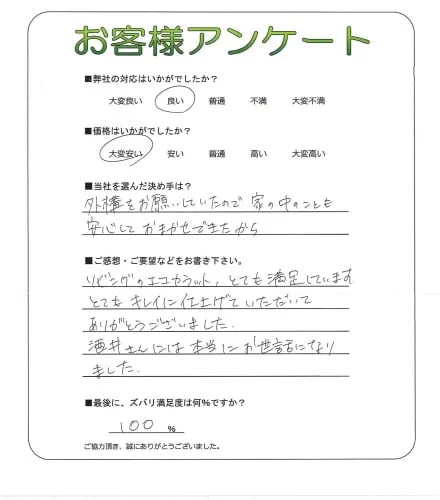 お客様アンケート
■弊社の対応はいかがでしたか？
大変良い 良い 普通 不満 大変不満
■価格はいかがでしたか？
大変安い 安い 普通 高い 大変高い
■当社を選んだ決め手は？
外構をお願いしていたので 家の中のことも
安心して おまかせできたから
■ご感想・ご要望などをお書き下さい。
リビングのエコカラット、とても満足しています
とても キレイに仕上げて いただいて
ありがとうございました.
酒井さんには 本当に お世話になり
ました.
■最後に、ズバリ満足度は何％ですか？
100 ％
ご協力頂き、誠にありがとうございました。